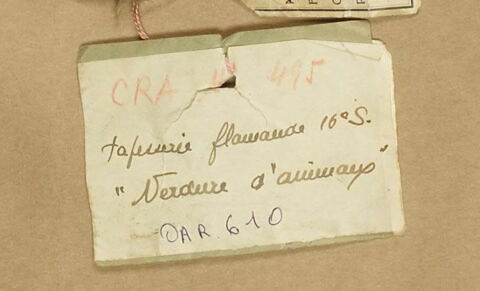 CRA N° 495
tapisserie flamande 16e S.
"Verdure d'animaux"
OAR. 610